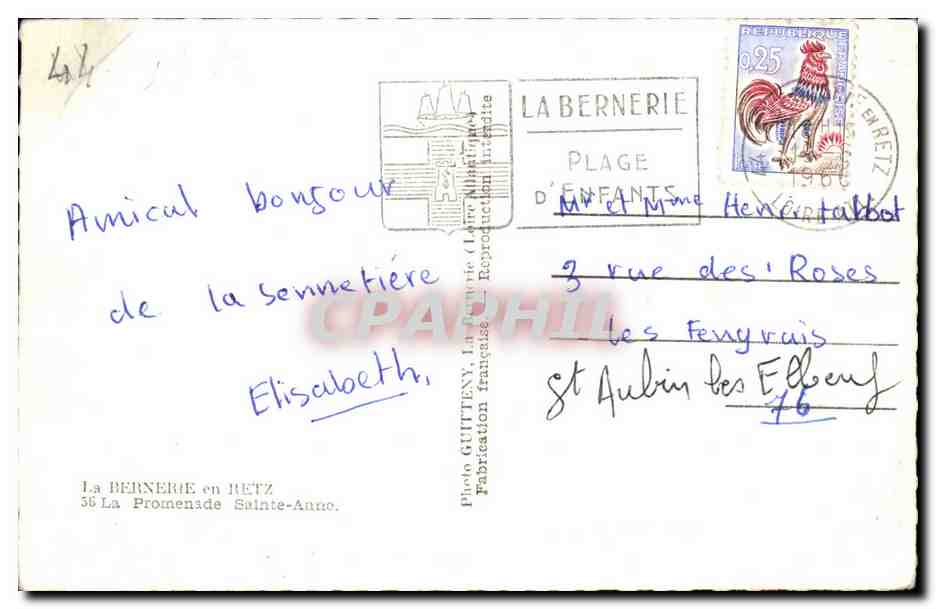 44
REPUBLIQUE FRANCAISE
0,25
LA BERNERIE
PLAGE
D'ENFANTS
EN RETZ
44
196
LOIRE
Amical bonjour
de la sennetiére
Elisabeth,
Mr et Mme Henri talbot
3 rue des Roses
les Fengrais
St Aubin les Elbeuf
76
Photo GUITTENY, La Bernerie (Loire Atlantique)
Fabrication française. — Reproduction interdite
CPAPHIL
La BERNERIE en RETZ
56 La Promenade Sainte-Anne.